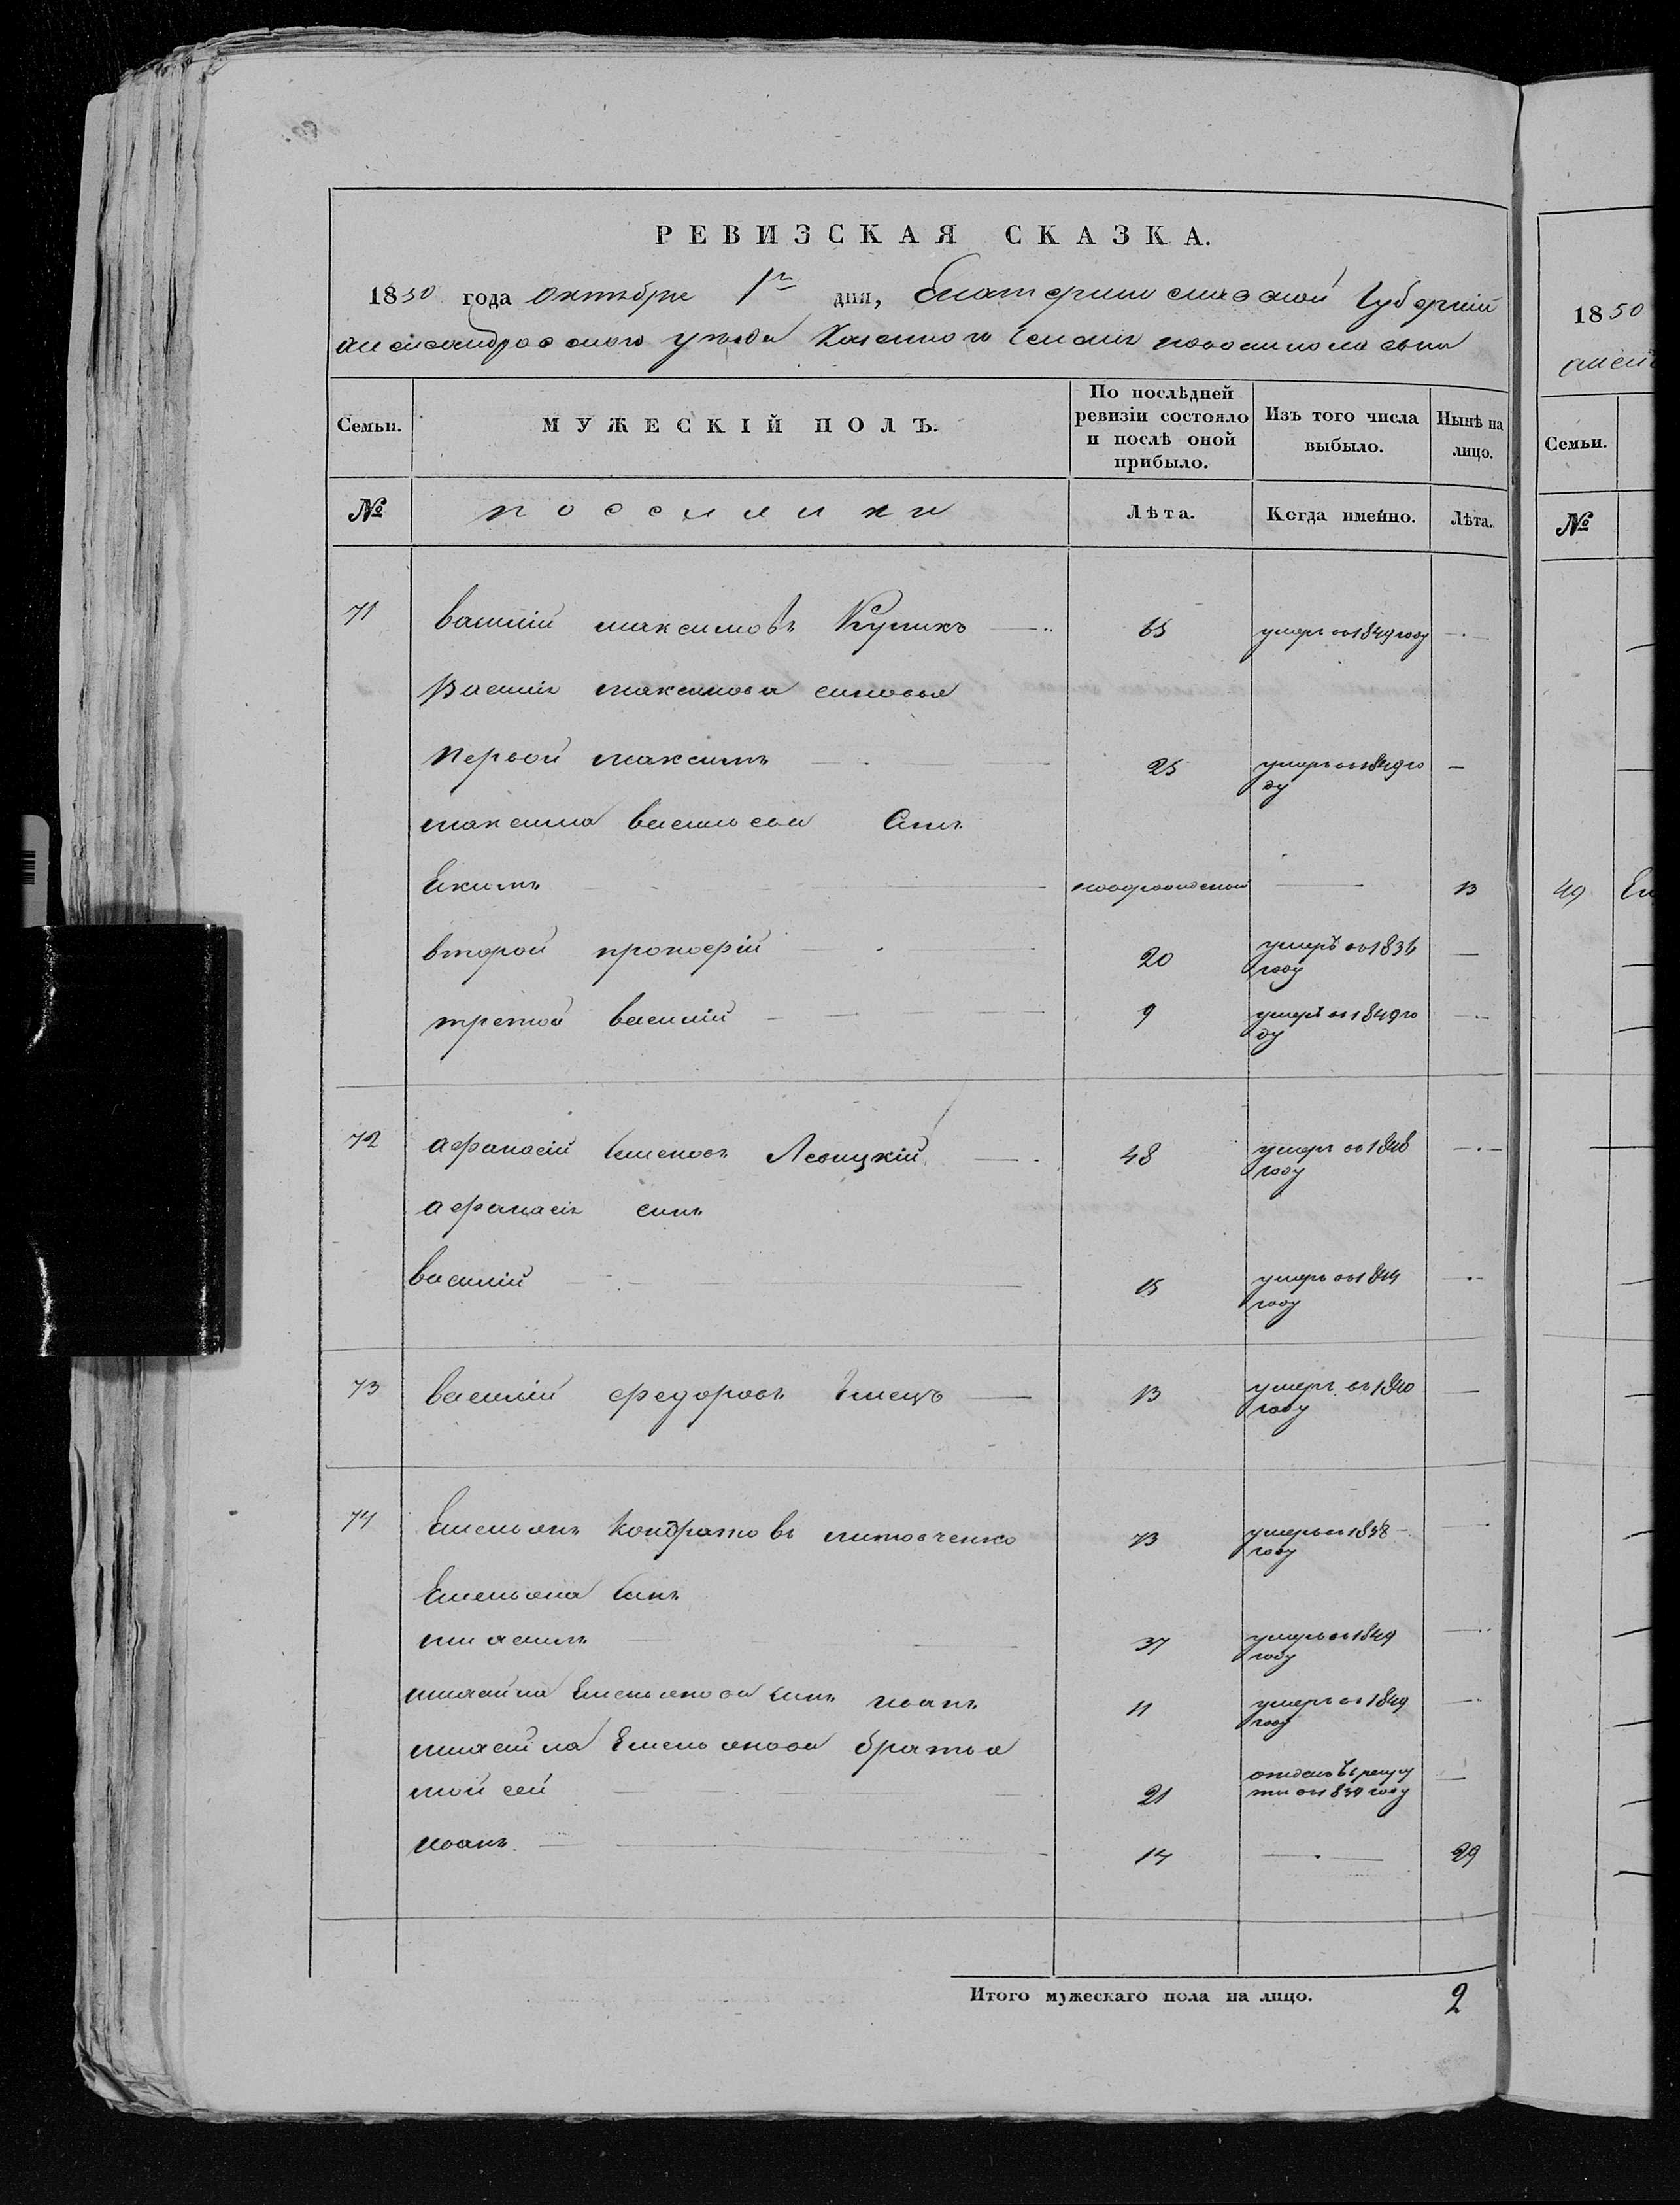 РЕВИЗСКАЯ СКАЗКА.
1850 года октября 1го дня, Екатеринославской Губерніи
александровского уезда Казенного Селенія новониколаевки
Семьи. МУЖЕСКІЙ ПОЛЪ. По послѣдней ревизіи состояло и послѣ оной прибыло. Изъ того числа выбыло. Нынѣ на лицо.
№ Лѣта. Когда именно. Лѣта.
71 василій максимовъ Куликъ 65 умеръ въ 1849 году
Василія максимова сыновья
Первой максимъ 25 умеръ въ 1849 го
ду
максима васильева Сынъ
Екимъ новорожденный 13
второй прокофій 20 умеръ въ 1836
году
третой василій 9 умеръ въ 1849 го
ду
72 афанасій Семеновъ Левицкій 48 умеръ въ 1848
году
афанасія сынъ
василій 15 умеръ въ 1844
году
73 василій федоровъ Емецъ 13 умеръ въ 1840
году
74 Емельянъ Кондратовъ литовченко 73 умеръ въ 1838
году
Емельяна Сынъ
михаилъ 37 умеръ въ 1849
году
михайла Емельянова Сынъ иванъ 11 умеръ въ 1849
году
михайла Емельянова братья
мойсей 21 отданъ въ рекру
ти въ 1839 году
иванъ 14 29
Итого мужескаго пола на лицо. 2
1850
Семьи.
№
49